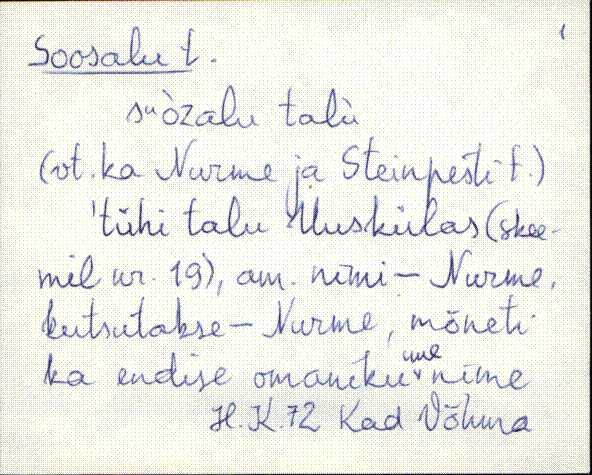 1
Soosalu t.
suòzalu talù
(vt. ka Nurme ja Steinpešti t.)
'tühi talu Uuskülas (skee-
mil nr. 19), am. nimi – Nurme,
kutsutakse – Nurme, mõneti
ka endise omaniku nime
H.K. 72 Kad Võhma